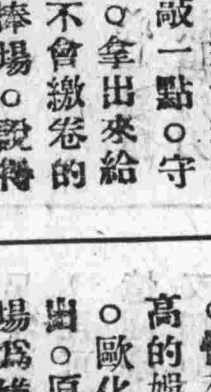 敲一點○守
○拿出來給
不會繳卷的
捧場○說
高的
○歐化
出○原
場爲